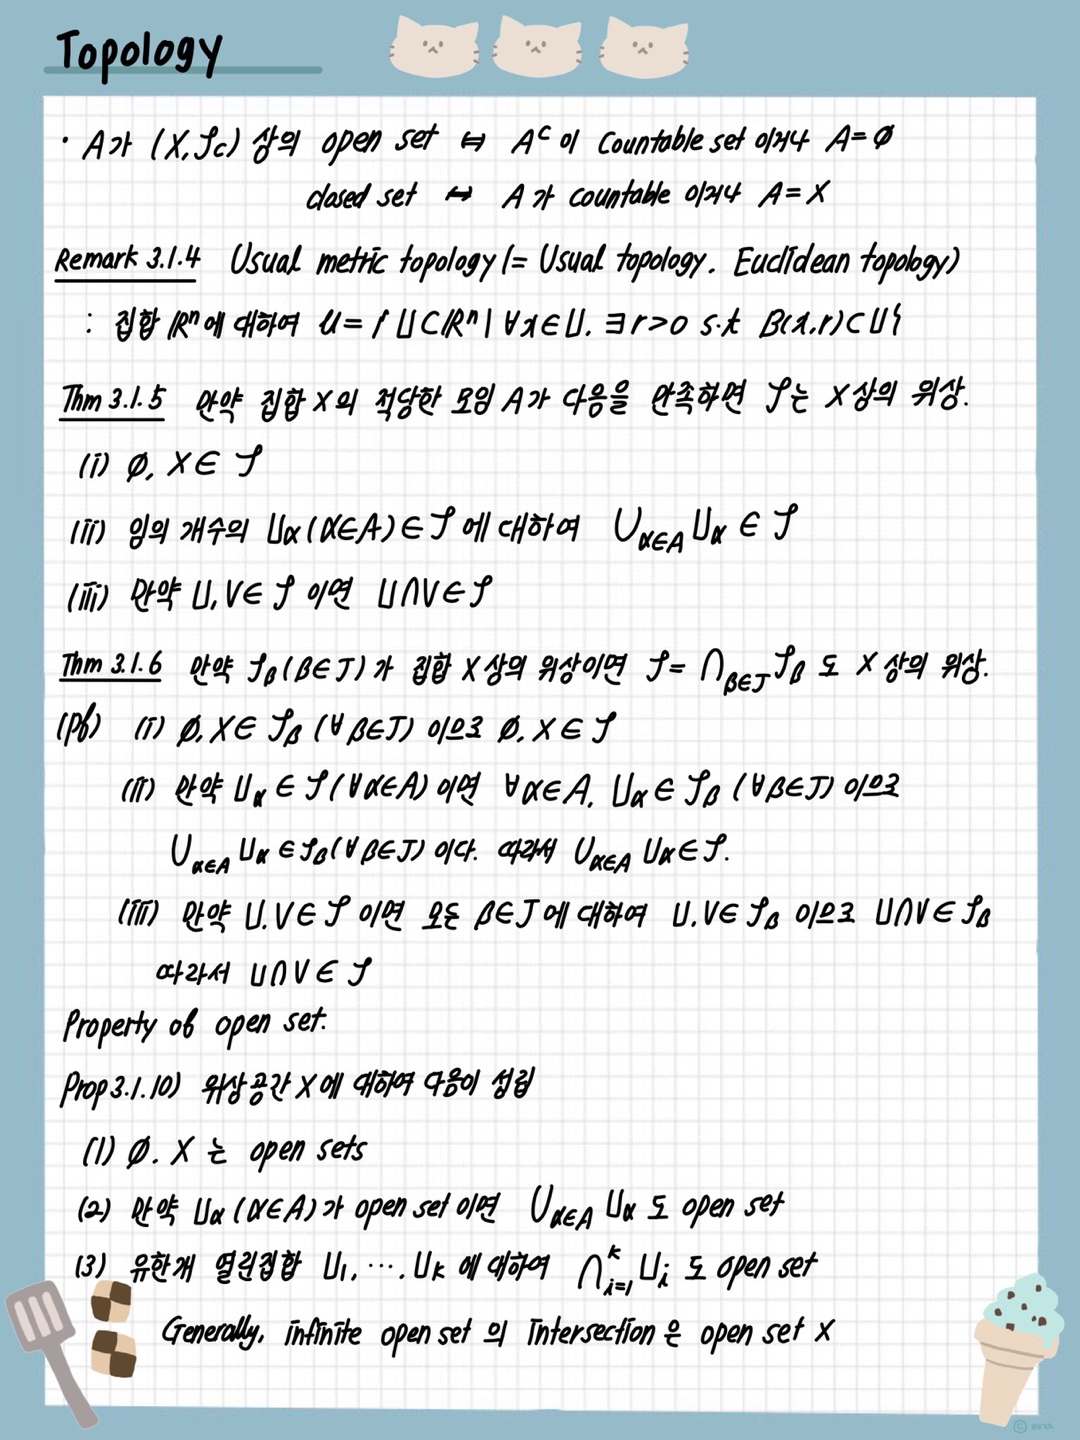 Topology
· A가 (X, 𝒯c) 상의 open set ⇔ Aᶜ이 Countable set 이거나 A = ∅
closed set ↔ A가 countable 이거나 A = X
Remark 3.1.4 Usual metric topology (= Usual topology. Euclidean topology)
: 집합 ℝⁿ에 대하여 𝒰 = { U ⊂ ℝⁿ | ∀x ∈ U. ∃r > 0 s.t B(x,r) ⊂ U }
Thm 3.1.5 만약 집합 X의 적당한 모임 A가 다음을 만족하면 𝒯는 X상의 위상.
(i) ∅, X ∈ 𝒯
(ii) 임의 개수의 Uα (α∈A) ∈ 𝒯 에 대하여 ⋃α∈A Uα ∈ 𝒯
(iii) 만약 U, V ∈ 𝒯 이면 U∩V ∈ 𝒯
Thm 3.1.6 만약 𝒯β (β∈J)가 집합 X상의 위상이면 𝒯 = ⋂β∈J 𝒯β 도 X상의 위상.
(pf) (i) ∅, X ∈ 𝒯β (∀β∈J) 이므로 ∅, X ∈ 𝒯
(ii) 만약 Uα ∈ 𝒯 (∀α∈A) 이면 ∀α∈A, Uα ∈ 𝒯β (∀β∈J) 이므로
⋃α∈A Uα ∈ 𝒯β (∀β∈J) 이다. 따라서 ⋃α∈A Uα ∈ 𝒯.
(iii) 만약 U.V ∈ 𝒯 이면 모든 β∈J에 대하여 U.V ∈ 𝒯β 이므로 U∩V ∈ 𝒯β
따라서 U∩V ∈ 𝒯
Property of open set.
Prop 3.1.10) 위상공간 X에 대하여 다음이 성립
(1) ∅. X 는 open sets
(2) 만약 Uα (α∈A)가 open set 이면 ⋃α∈A Uα 도 open set
(3) 유한개 열린집합 U₁, ⋯, Uk 에 대하여 ⋂ᵏi=1 Ui 도 open set
Generally, infinite open set 의 intersection은 open set X